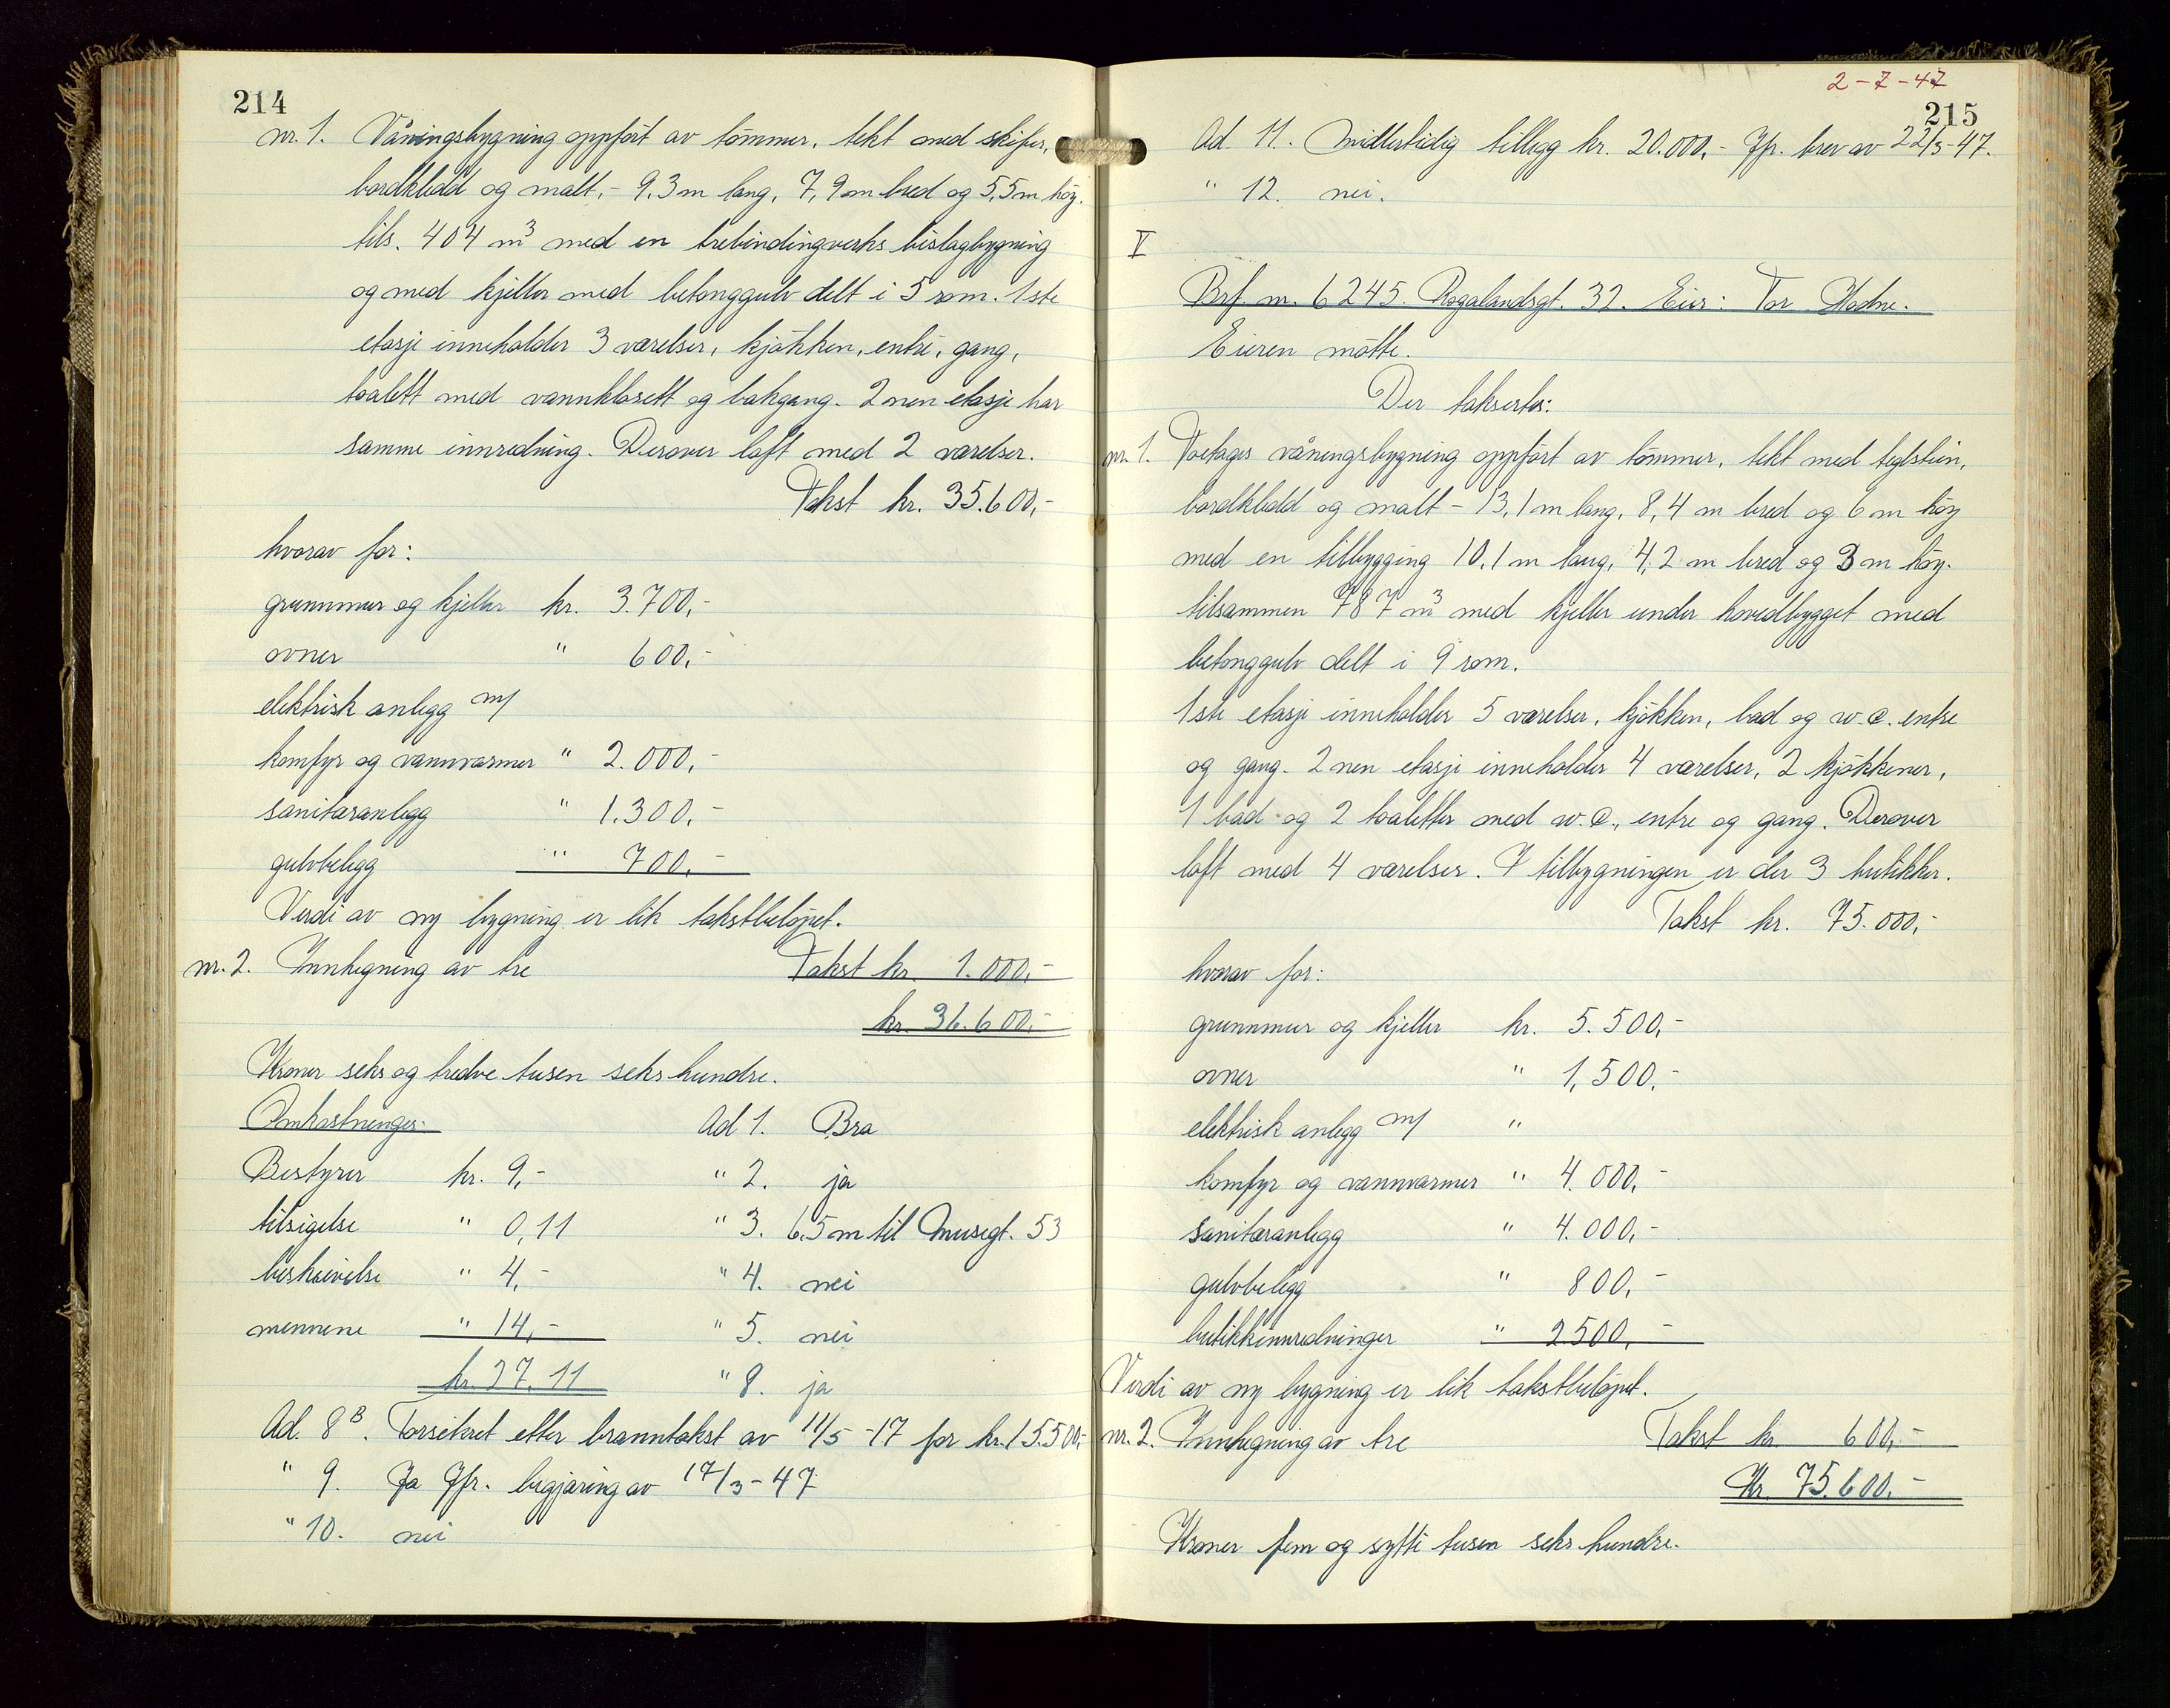 214
nr. 1. Våningsbygning oppført av tømmer, tekt med skifer,
bordkledd og malt, - 9,3 m lang, 7,9 m bred og 5,5 m høy.
tils. 404 m³ med en trebindingverks bislagbygning
og med kjeller med betonggulv delt i 5 rom. 1ste
etasje inneholder 3 værelser, kjøkken, entré, gang,
toalett med vannklosett og bakgang. 2nen etasje har
samme innredning. Derover loft med 2 værelser.
Takst kr. 35.600,-
hvorav for:
grunnmur og kjeller kr. 3.700,-
ovner " 600,-
elektrisk anlegg m/
komfyr og vannvarmer " 2.000,-
sanitæranlegg " 1.300,-
gulvbelegg " 700,-
Verdi av ny bygning er lik takstbeløpet.
nr. 2. Innhegning av tre Takst kr. 1.000,-
kr. 36.600,-
Kroner seks og tredve tusen seks hundre.
Omkostninger: Ad 1. Bra
Bestyrer kr. 9,- " 2. ja
tilsigelse " 0,11 " 3. 6,5 m til Musegt. 53
beskrivelse " 4,- " 4. nei
mennene " 14,- " 5. nei
kr. 27,11 " 8. ja
Ad. 8ᴮ. Forsikret etter branntakst av 11/5-17 for kr. 15.500,-
" 9. Ja Jfr. begjæring av 17/3-47
" 10. nei
2-7-47
215
Ad 11. Midlertidig tillegg kr. 20.000,- Jfr. brev av 22/3-47.
" 12. nei.
V
Brf. nr. 6245. Rogalandsgt. 32. Eier: Tor Hodne.
Eieren møtte.
Der taksertes:
nr. 1. Toetages våningsbygning oppført av tømmer, tekt med teglstein,
bordkledd og malt - 13,1 m lang, 8,4 m bred og 6 m høy
med en tilbygging 10,1 m lang, 4,2 m bred og 3 m høy.
tilsammen 787 m³ med kjeller under hovedbygget med
betonggulv delt i 9 rom.
1ste etasje inneholder 5 værelser, kjøkken, bad og w.c. entre
og gang. 2nen etasje inneholder 4 værelser, 2 kjøkkener,
1 bad og 2 toaletter med w.c., entre og gang. Derover
loft med 4 værelser. I tilbygningen er der 3 butikker.
Takst kr. 75.000,-
hvorav for:
grunnmur og kjeller kr. 5.500,-
ovner " 1,500,-
elektrisk anlegg m/ "
komfyr og vannvarmer " 4.000,-
sanitæranlegg " 4.000,-
gulvbelegg " 800,-
butikkinnredninger " 2500,-
Verdi av ny bygning er lik takstbeløpet.
nr. 2. Innhegning av tre Takst kr. 600,-
Kr. 75.600,-
Kroner fem og sytti tusen seks hundre.